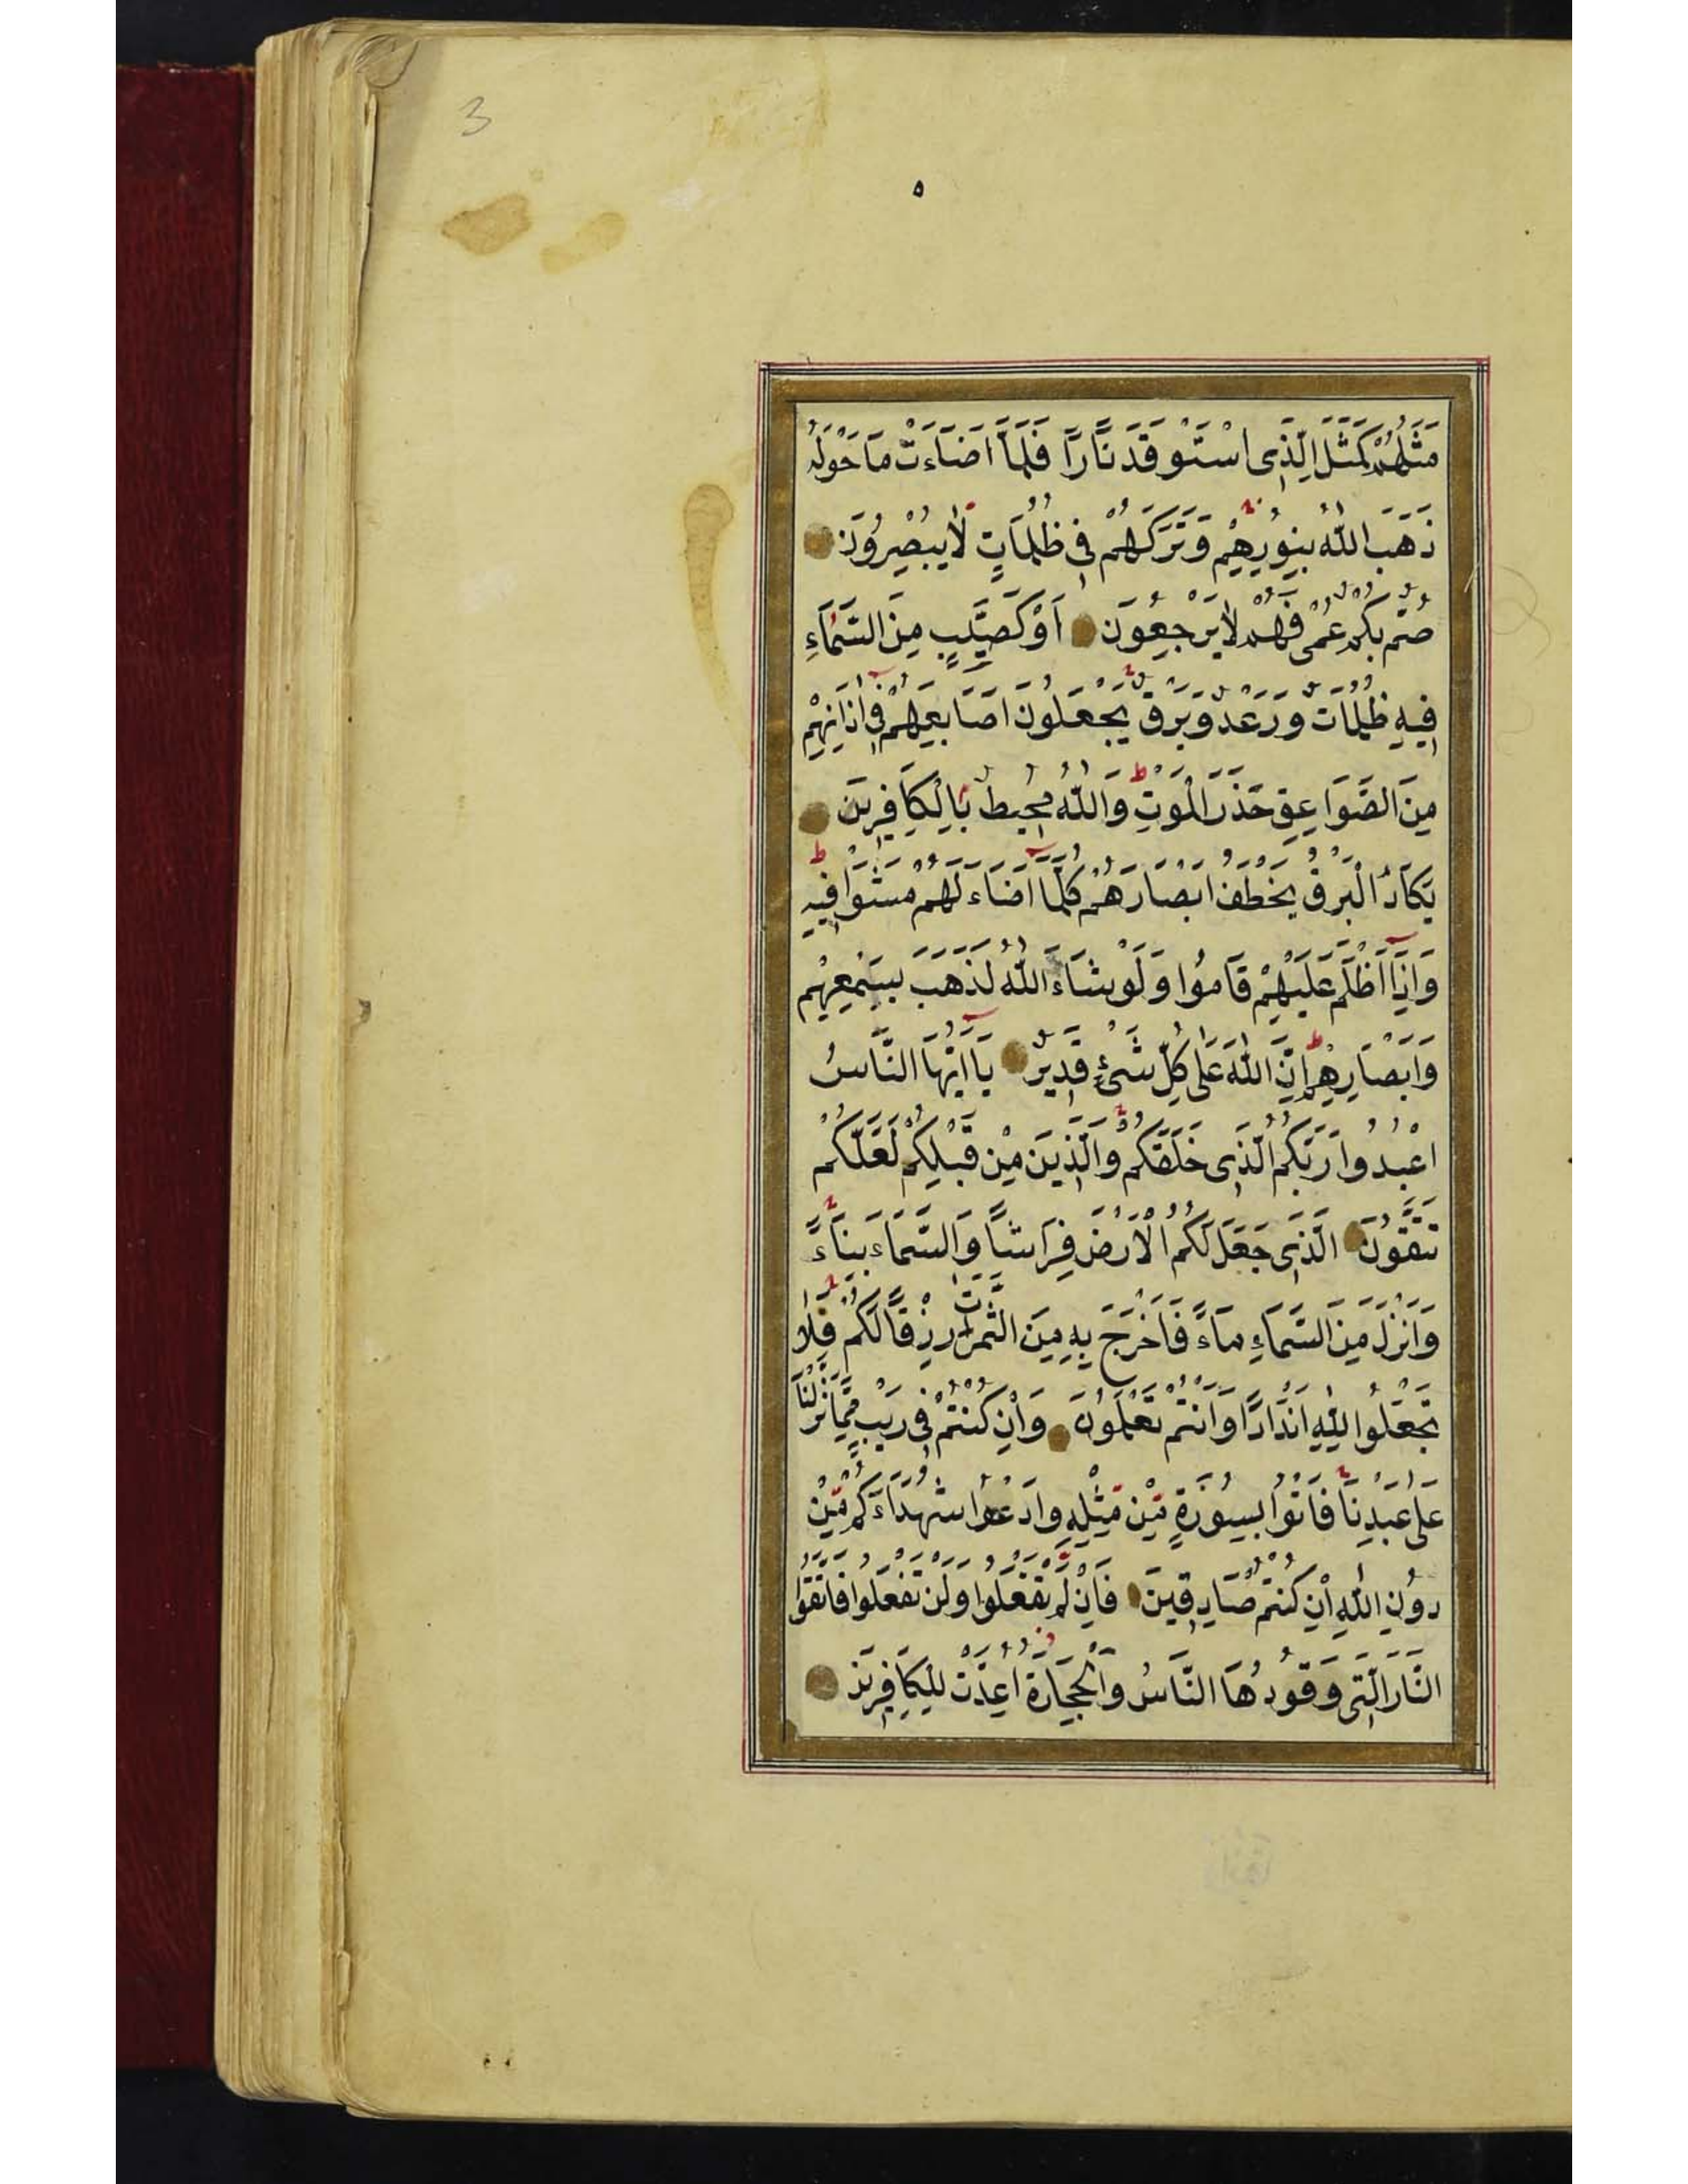 3
٥
مَثَلُهُمْ كَمَثَلِ الَّذِى اسْتَوْقَدَ نَارًا فَلَمَّا اَضَآءَتْ مَا حَوْلَهُ
ذَهَبَ اللّٰهُ بِنُورِهِمْ وَتَرَكَهُمْ فِى ظُلُمَاتٍ لَا يُبْصِرُونَ
صُمٌّ بُكْمٌ عُمْىٌ فَهُمْ لَا يَرْجِعُونَ اَوْ كَصَيِّبٍ مِنَ السَّمَآءِ
فِيهِ ظُلُمَاتٌ وَرَعْدٌ وَبَرْقٌ يَجْعَلُونَ اَصَابِعَهُمْ فِى اٰذَانِهِمْ
مِنَ الصَّوَاعِقِ حَذَرَ الْمَوْتِ وَاللّٰهُ مُحِيطٌ بِالْكَافِرِينَ
يَكَادُ الْبَرْقُ يَخْطَفُ اَبْصَارَهُمْ كُلَّمَآ اَضَآءَ لَهُمْ مَشَوْا فِيهِ
وَاِذَآ اَظْلَمَ عَلَيْهِمْ قَامُوا وَلَوْ شَآءَ اللّٰهُ لَذَهَبَ بِسَمْعِهِمْ
وَاَبْصَارِهِمْ اِنَّ اللّٰهَ عَلٰى كُلِّ شَىْءٍ قَدِيرٌ يَآ اَيُّهَا النَّاسُ
اعْبُدُوا رَبَّكُمُ الَّذِى خَلَقَكُمْ وَالَّذِينَ مِنْ قَبْلِكُمْ لَعَلَّكُمْ
تَتَّقُونَ الَّذِى جَعَلَ لَكُمُ الْاَرْضَ فِرَاشًا وَالسَّمَآءَ بِنَآءً
وَاَنْزَلَ مِنَ السَّمَآءِ مَآءً فَاَخْرَجَ بِهِ مِنَ الثَّمَرَاتِ رِزْقًا لَكُمْ فَلَا
تَجْعَلُوا لِلّٰهِ اَنْدَادًا وَاَنْتُمْ تَعْلَمُونَ وَاِنْ كُنْتُمْ فِى رَيْبٍ مِمَّا نَزَّلْنَا
عَلٰى عَبْدِنَا فَاْتُوا بِسُورَةٍ مِنْ مِثْلِهِ وَادْعُوا شُهَدَآءَكُمْ مِنْ
دُونِ اللّٰهِ اِنْ كُنْتُمْ صَادِقِينَ فَاِنْ لَمْ تَفْعَلُوا وَلَنْ تَفْعَلُوا فَاتَّقُوا
النَّارَ الَّتِى وَقُودُهَا النَّاسُ وَالْحِجَارَةُ اُعِدَّتْ لِلْكَافِرِينَ